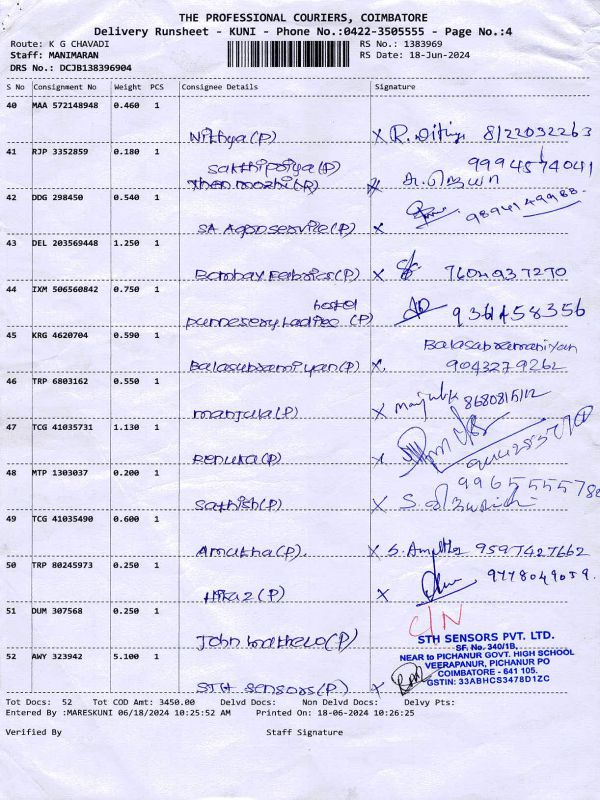 THE PROFESSIONAL COURIERS, COIMBATORE
Delivery Runsheet - KUNI - Phone No.:0422-3505555 - Page No.:4
Route: K G CHAVADI
RS No.: 1383969
Staff: MANIMARAN
RS Date: 18-Jun-2024
DRS No.: DCJB138396904
S No Consignment No Weight PCS Consignee Details Signature
40 MAA 572148948 0.460 1
Nithya(P) X R. 8122032263
41 RJP 3352859 0.180 1
9994574041
Sakthipriya(P)
Then mozhi(P)
42 DDG 298450 0.540 1
9894149988
SA Agroservice(P) X
43 DEL 203569448 1.250 1
Bombay Fabrics(P) X 7604937270
44 IXM 506560842 0.750 1
hostel
Ladies (P) 9361458356
45 KRG 4620704 0.590 1
Balasubramaniyan
Balasubramiyan(P) X. 9043279262
46 TRP 6803162 0.550 1
manjula(P) X 8680815112
47 TCG 41035731 1.130 1
Renuka(P) X
48 MTP 1303037 0.200 1
Sathish(P) X S.
49 TCG 41035490 0.600 1
Amutha(P). X S. 9597427662
50 TRP 80245973 0.250 1
9778049059.
(P) X
51 DUM 307568 0.250 1
C/N
John (P)
STH SENSORS PVT. LTD.
SF. No. 340/1B,
NEAR to PICHANUR GOVT. HIGH SCHOOL
VEERAPANUR, PICHANUR PO
COIMBATORE - 641 105.
GSTIN: 33ABHCS3478D1ZC
52 AWY 323942 5.100 1
STH Sensors(P) X
Tot Docs: 52 Tot COD Amt: 3450.00 Delvd Docs: Non Delvd Docs: Delvy Pts:
Entered By :MARESKUNI 06/18/2024 10:25:52 AM Printed On: 18-06-2024 10:26:25
Verified By Staff Signature